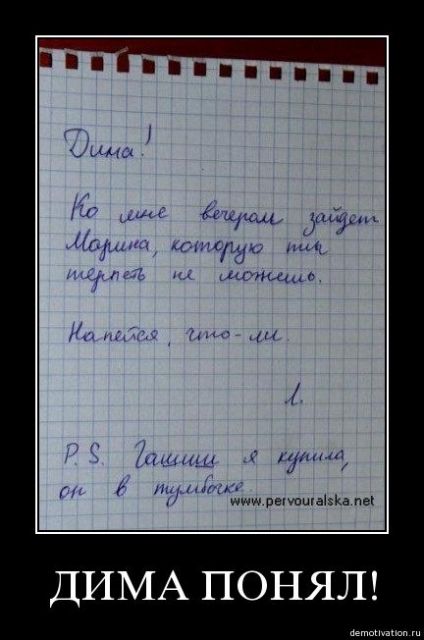 Дима!
Ко мне вечером зайдет
Марина, которую ты
терпеть не можешь.
Напейся, что-ли.
Л.
P.S. Гашиш я купила,
он в тумбочке.
www.pervouralska.net
ДИМА ПОНЯЛ!
demotivation.ru